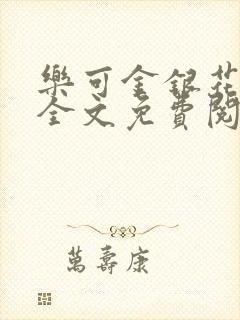 樂可金銀花
全文免費閱
萬壽康